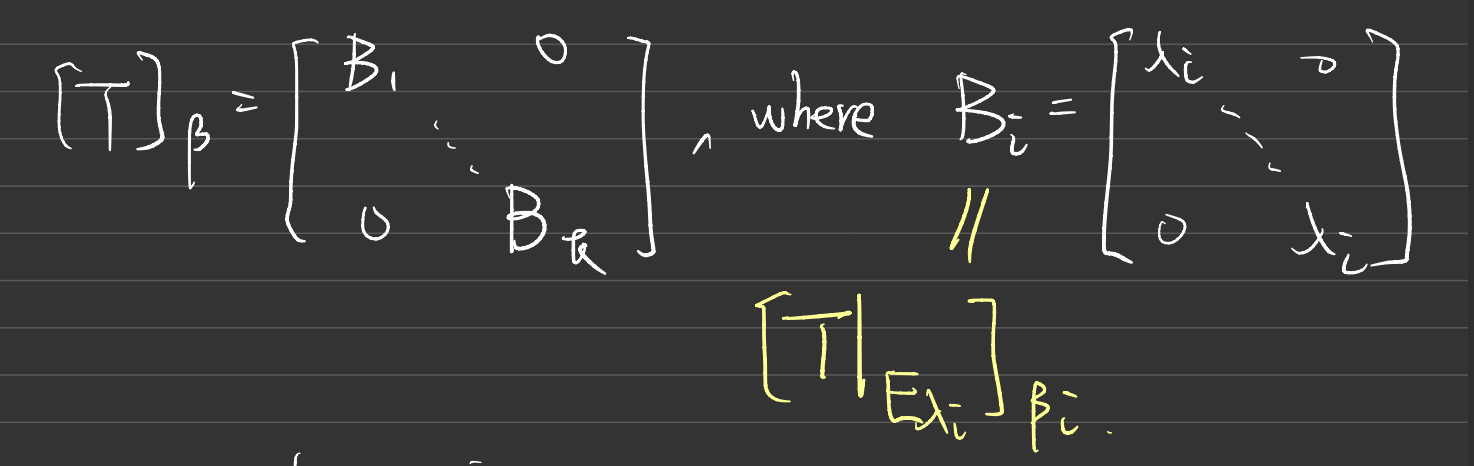 [T]_β = [B_1 0 ⋱ 0 B_k], where B_i = [λ_i 0 ⋱ 0 λ_i]
||
[T|_{E_{λ_i}}]_{β_i}.